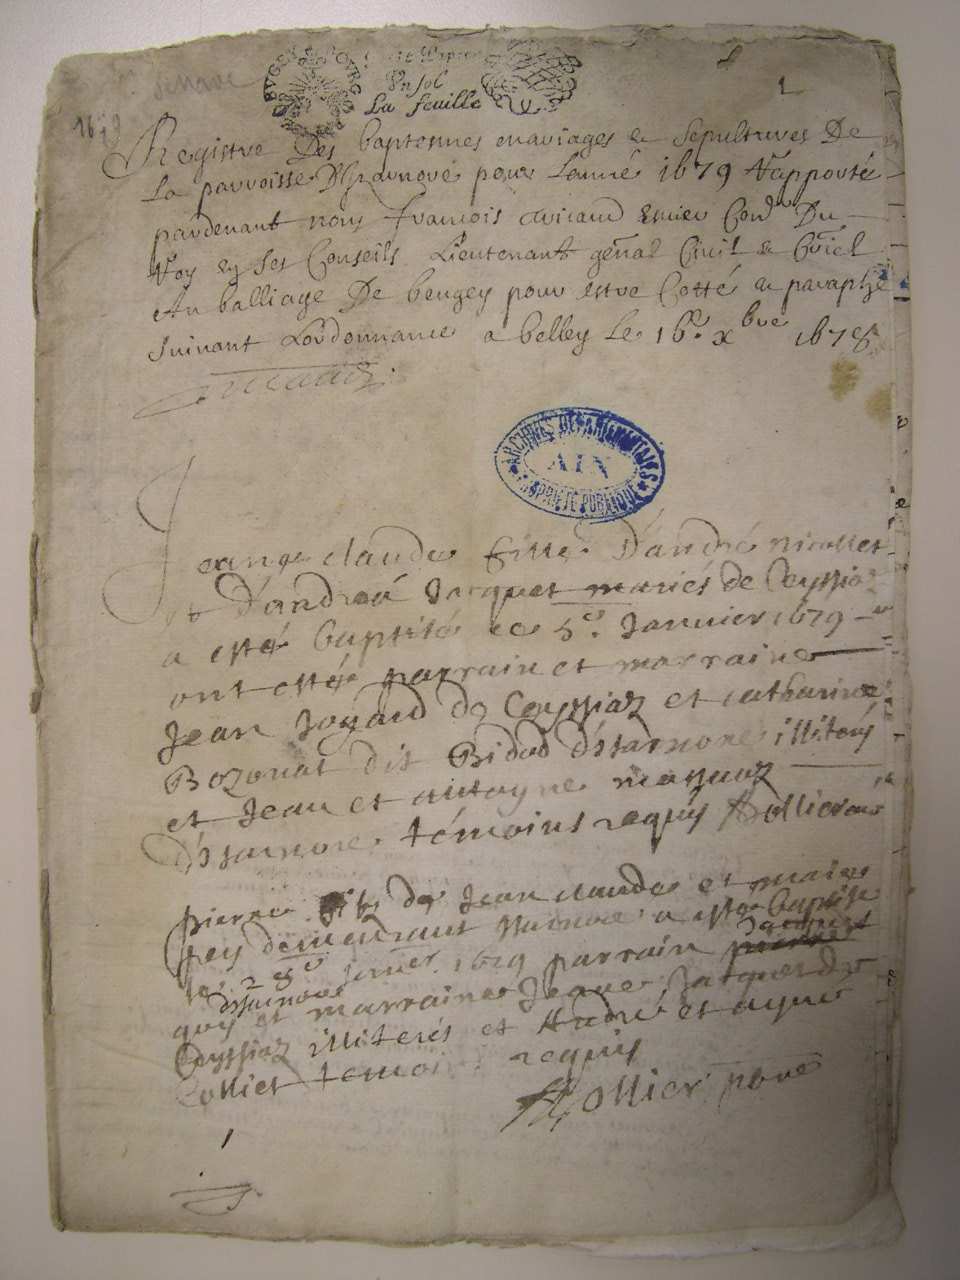 1679
1
BUGEY BOURG
Un sol
La feuille
Registre Des baptesmes mariages & Sepultures De
La parroisse D'Izarnore pour Lannée 1679 Rapporté
pardevant nous François Escuier Con.er Du
Roy en ses Conseils Lieutenant gñal Civil & Criel
Au balliage De beugey pour estre Cotté & paraphé
suivant Lordonnance a belley Le 16e. Xbre 1678
ARCHIVES DEPARTEMENTALES
AIN
PROPRIETE PUBLIQUE
Jeanne claude fille D'andré nicollet
et D'andréa Jacquet mariés de Ceyssiaz
a esté baptisée ce 5e. Janvier 1679
ont esté parrain et marraine
Jean Joyard de Ceyssiaz et catharine
Bozonat dit Bidod d'Isarnore illiterés
et Jean et antoyne
d'Isarnore témoins requis Hollier
pierre fils de Jean claude et marie
pey demeurant Isarnore a esté baptisé
le 28e Janvier 1679 parrain Jacquet
d'Isarnore
guy et marraine Jeanne Jacquet de
Ceyssiaz illiterés et André et ayme
Collict temoins requis
Hollier pbre